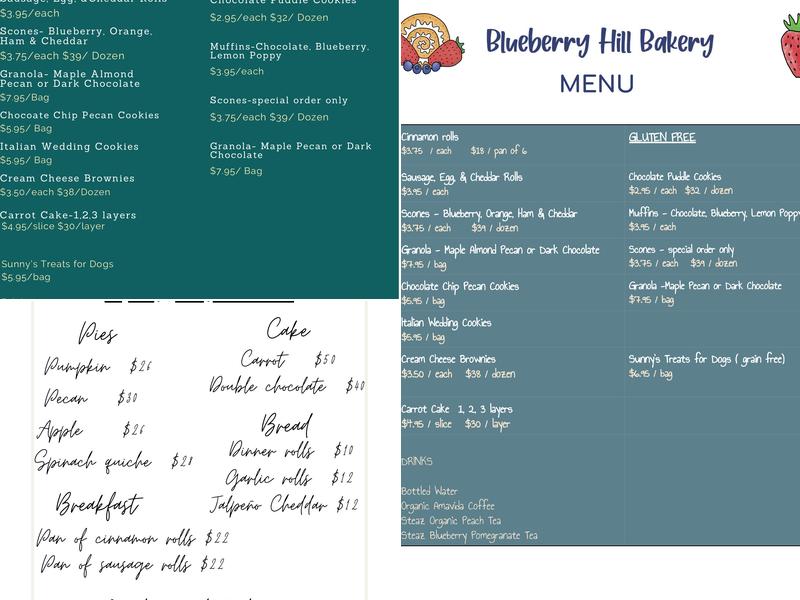 Sausage, Egg, &Cheddar Rolls
$3.95/each
Scones- Blueberry, Orange,
Ham & Cheddar
$3.75/each $39/ Dozen
Granola- Maple Almond
Pecan or Dark Chocolate
$7.95/Bag
Chocoate Chip Pecan Cookies
$5.95/ Bag
Italian Wedding Cookies
$5.95/ Bag
Cream Cheese Brownies
$3.50/each $38/Dozen
Carrot Cake-1,2,3 layers
$4.95/slice $30/layer
Sunny's Treats for Dogs
$5.95/bag
Chocolate Puddle Cookies
$2.95/each $32/ Dozen
Muffins-Chocolate, Blueberry,
Lemon Poppy
$3.95/each
Scones-special order only
$3.75/each $39/ Dozen
Granola- Maple Pecan or Dark
Chocolate
$7.95/ Bag
Blueberry Hill Bakery
MENU
Cinnamon rolls
$3.75 / each $18 / pan of 6
Sausage, Egg, & Cheddar Rolls
$3.95 / each
Scones - Blueberry, Orange, Ham & Cheddar
$3.75 / each $39 / dozen
Granola - Maple Almond Pecan or Dark Chocolate
$7.95 / bag
Chocolate Chip Pecan Cookies
$5.95 / bag
Italian Wedding Cookies
$5.95 / bag
Cream Cheese Brownies
$3.50 / each $38 / dozen
Carrot Cake 1, 2, 3 layers
$4.95 / slice $30 / layer
DRINKS
Bottled Water
Organic Amavida Coffee
Steaz Organic Peach Tea
Steaz Blueberry Pomegranate Tea
GLUTEN FREE
Chocolate Puddle Cookies
$2.95 / each $32 / dozen
Muffins - Chocolate, Blueberry, Lemon Poppy
$3.95 / each
Scones - special order only
$3.75 / each $39 / dozen
Granola -Maple Pecan or Dark Chocolate
$7.95 / bag
Sunny's Treats for Dogs ( grain free)
$6.95 / bag
Pies
Pumpkin $26
Pecan $30
Apple $26
Spinach quiche $28
Breakfast
Pan of cinnamon rolls $22
Pan of sausage rolls $22
Cake
Carrot $50
Double chocolate $40
Bread
Dinner rolls $10
Garlic rolls $12
Jalpeño Cheddar $12